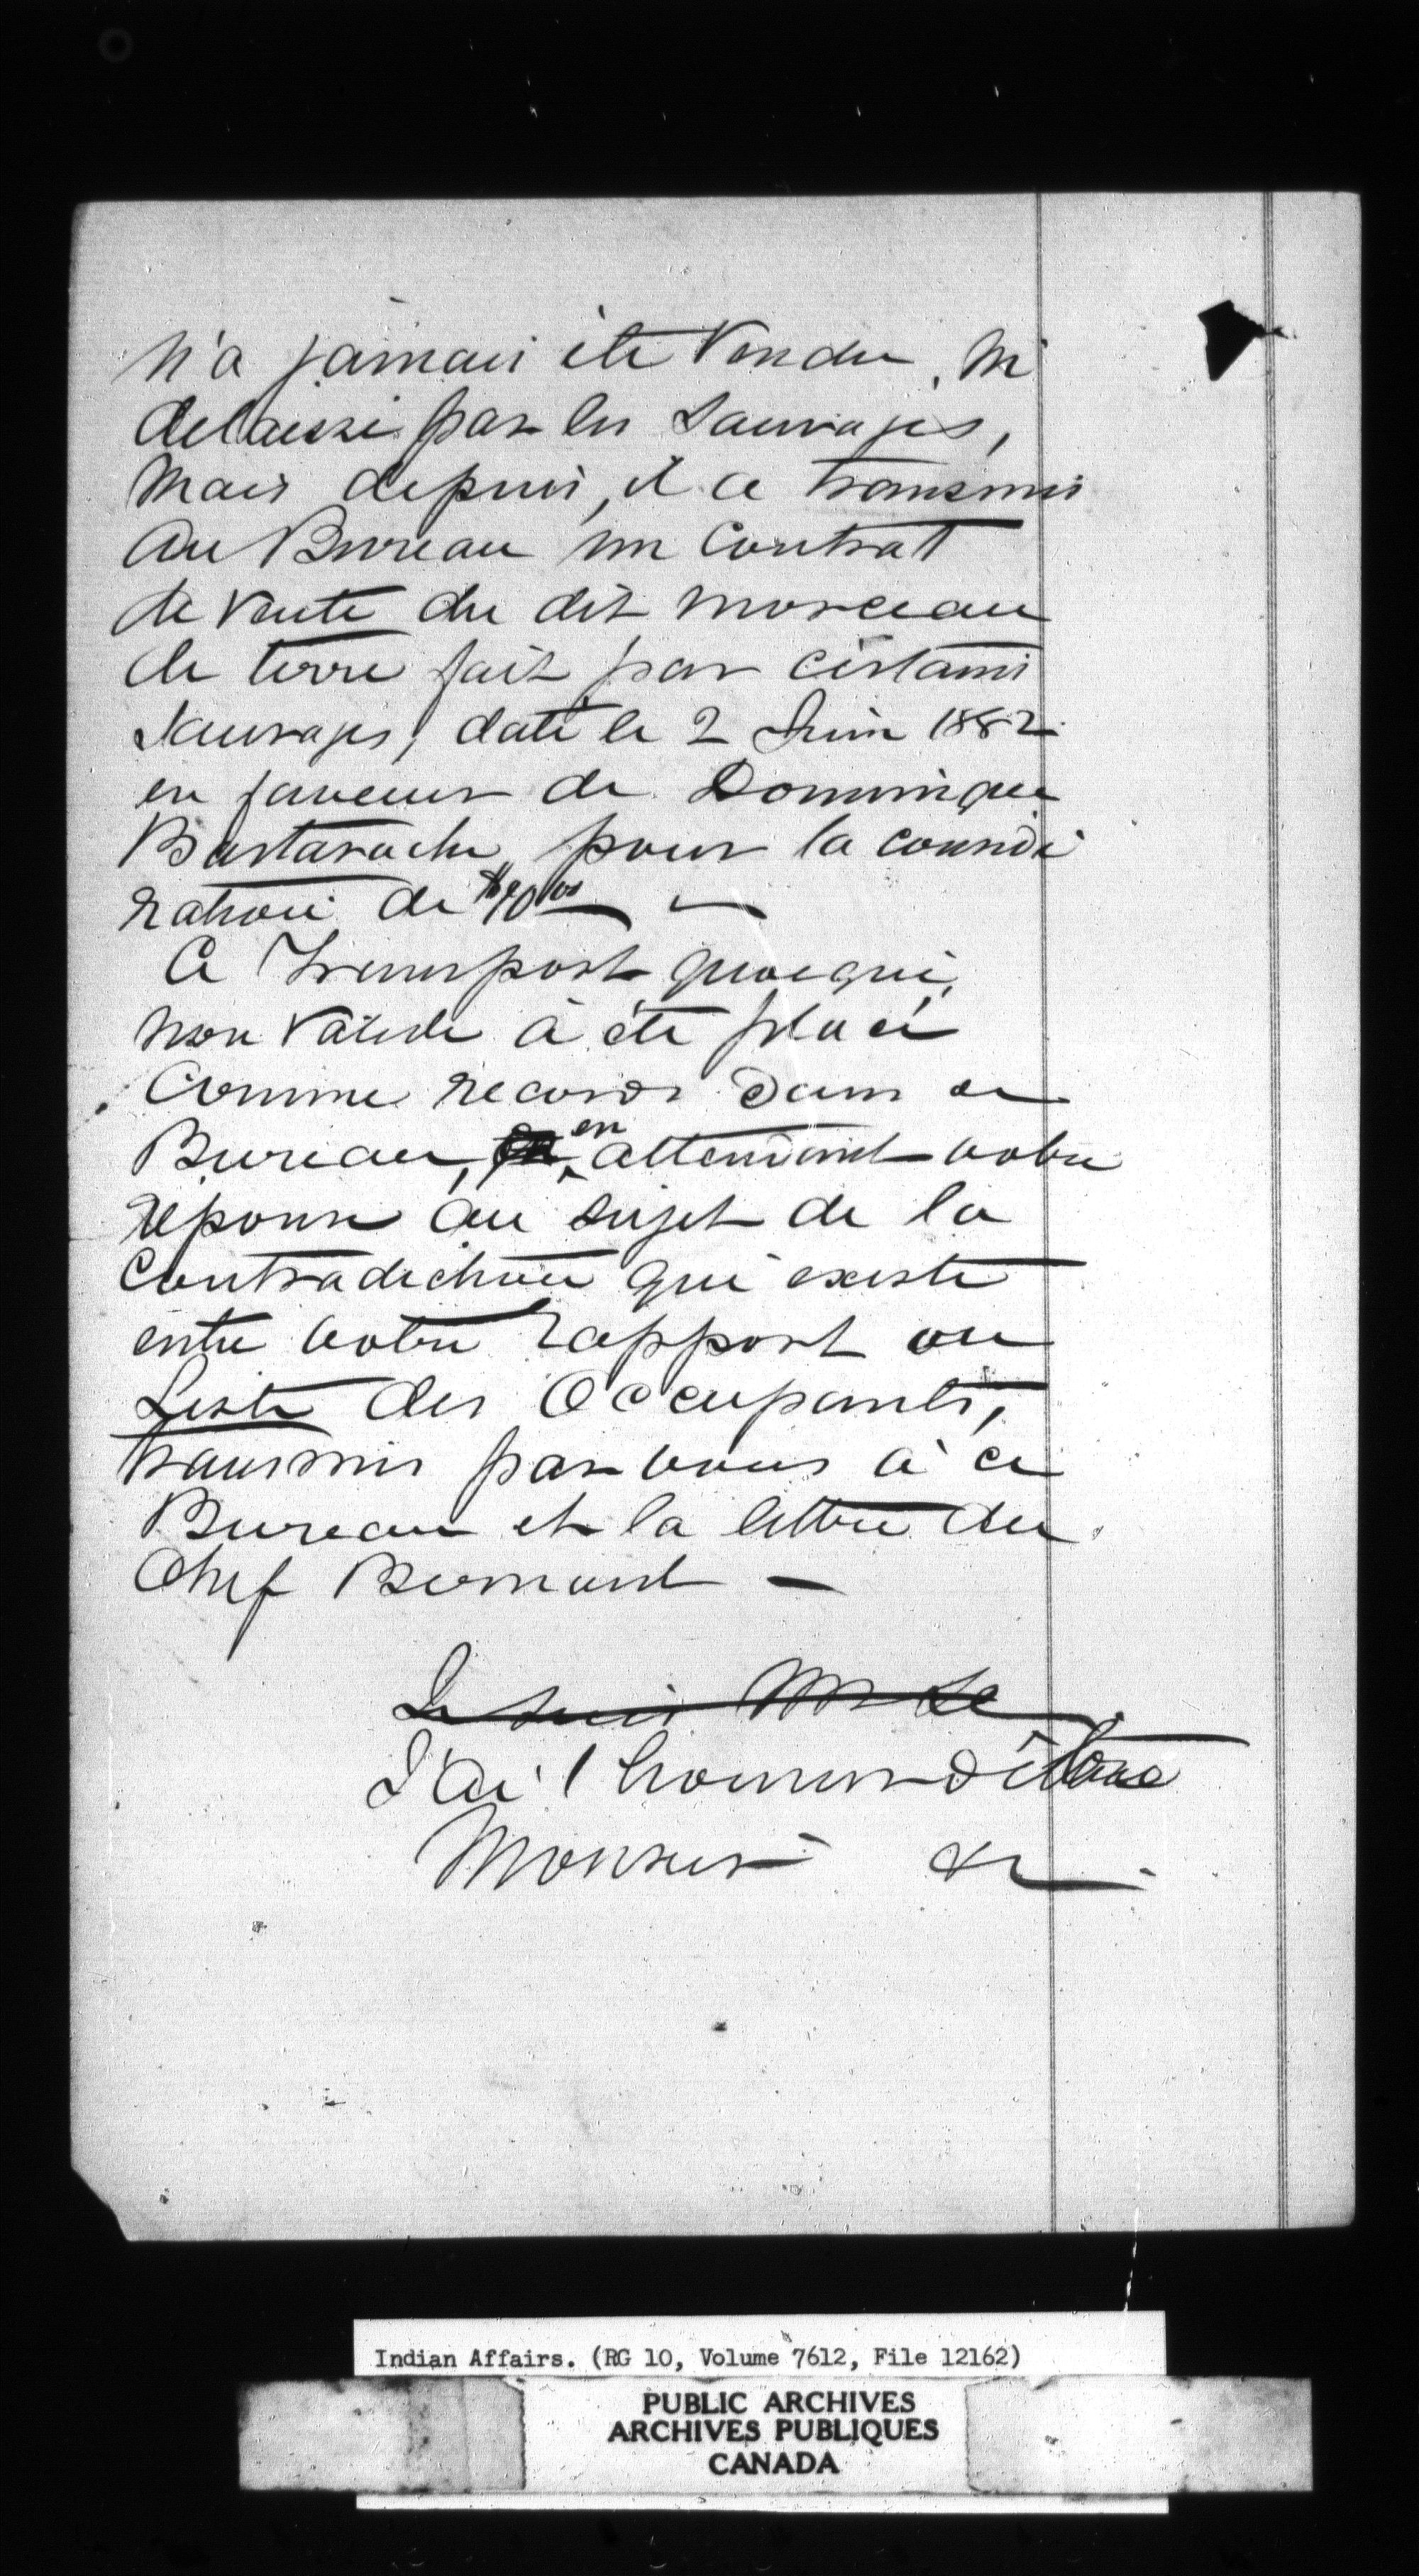 n'a jamais été vendu, ni
delaissé par les Sauvages,
mais depuis, il a transmis
au Bureau un Contrat
de vente du dit morceau
de terre fait par certains
Sauvages, daté le 2 Juin 1882
en faveur de Dominique
Bastarache, pour la considé
ration de
Ce Transport quoique,
non valide à été placé
Comme records dans ce
Bureau, en attendant votre
réponse au sujet de la
Contradiction qui existe
entre votre rapport ou
Liste des Occupants,
transmis par vous à ce
Bureau et la lettre du
Chef Bernard —
Je suis
J'ai l'honneur d'être
Monsieur &c
Indian Affairs. (RG 10, Volume 7612, File 12162)
PUBLIC ARCHIVES
ARCHIVES PUBLIQUES
CANADA